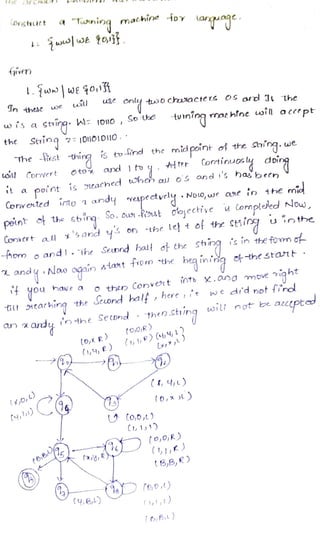 Construct a Turning machine for language.
1. {ww|wE {0,1}}
Given
1. {ww | wE {0,1}}
In these we will use only two characters 0s and 1s The
w is a string. W= 10110, so the turning machine will accept
the string z=1011010110.
The first thing is to find the midpoint of the string. we
will convert 0 to x and 1 to y. After continuosly doing
it a point is reached when all 0's and 1's has been
converted into x and y respectively. Now, we are in the mid
point of the string. So. our first objective is completed Now,
Convert all x's and y's on the left of the string is in the
from 0 and 1. The second half of the string is in the form of
x and y. Now again start from the begining of the start.
if you have a 0 then convert into x. and move right
till reaching the second half, here, it we did not find
an x and y in the second. then string will not be accepted
(0,x R)
(1,y, R)
(0,0,R)
(1,1,R)
(x, y, L)
(0, x, L)
(0,0,L)
(1,1,L)
(0,0,R)
(1,1,R)
(B,B,R)
(0,0,L)
(1,1,L)
(y,B,L)